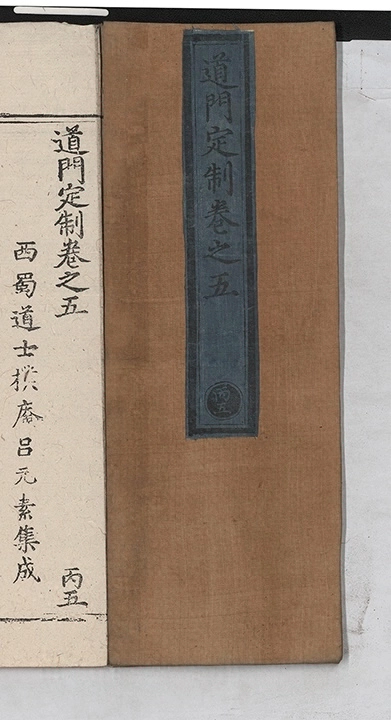 道門定制卷之五
丙五
道門定制卷之五
丙五
西蜀道士樸庵吕元素集成